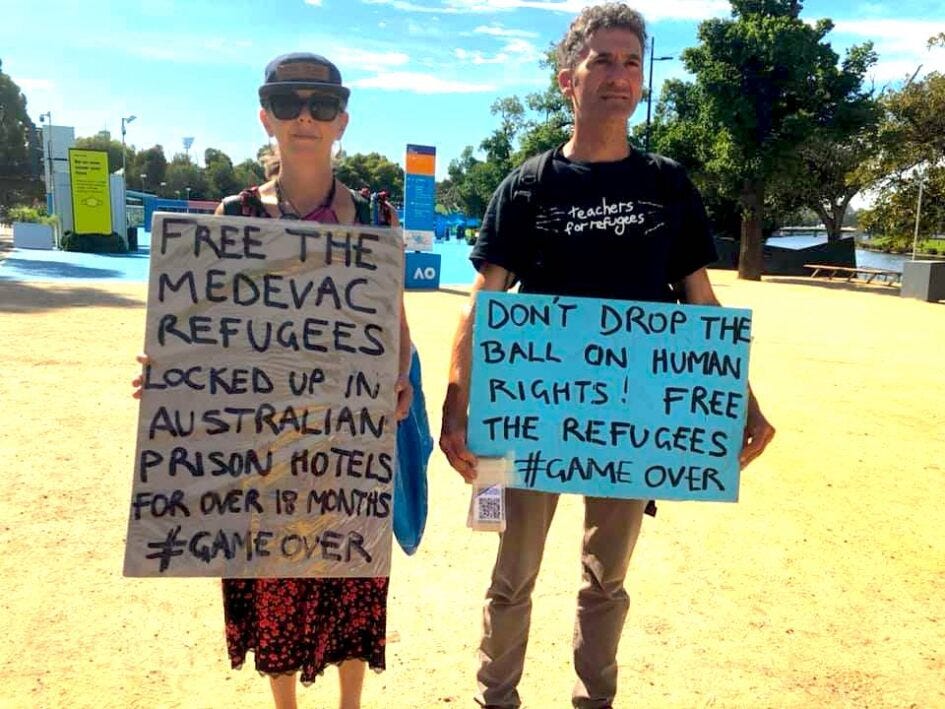 FREE THE
MEDEVAC
REFUGEES
LOCKED UP IN
AUSTRALIAN
PRISON HOTELS
FOR OVER 18 MONTHS
#GAME OVER
teachers
for refugees
DON'T DROP THE
BALL ON HUMAN
RIGHTS! FREE
THE REFUGEES
#GAME OVER
AO